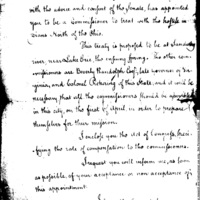 with the advice and consent of the Senate, has appointed
you to be a Commissioner to treat with the hostile In-
dians North of the Ohio.
This treaty is proposed to be at Sandusky
near Lake Erie, the ensuing spring. The other com-
missioners are Beverly Randolph Esqr, late governor of Vir-
ginia, and Colonel Pickering of this State and it will be
necessary that all the commissioners should be
in this city, on the first of April, in order to prepare
themselves for their mission.
I enclose you the act of Congress, speci-
fying the rate of compensation to the commissioners.
I request you will inform me, as soon
as possible, of your acceptance or non acceptance of
this appointment.